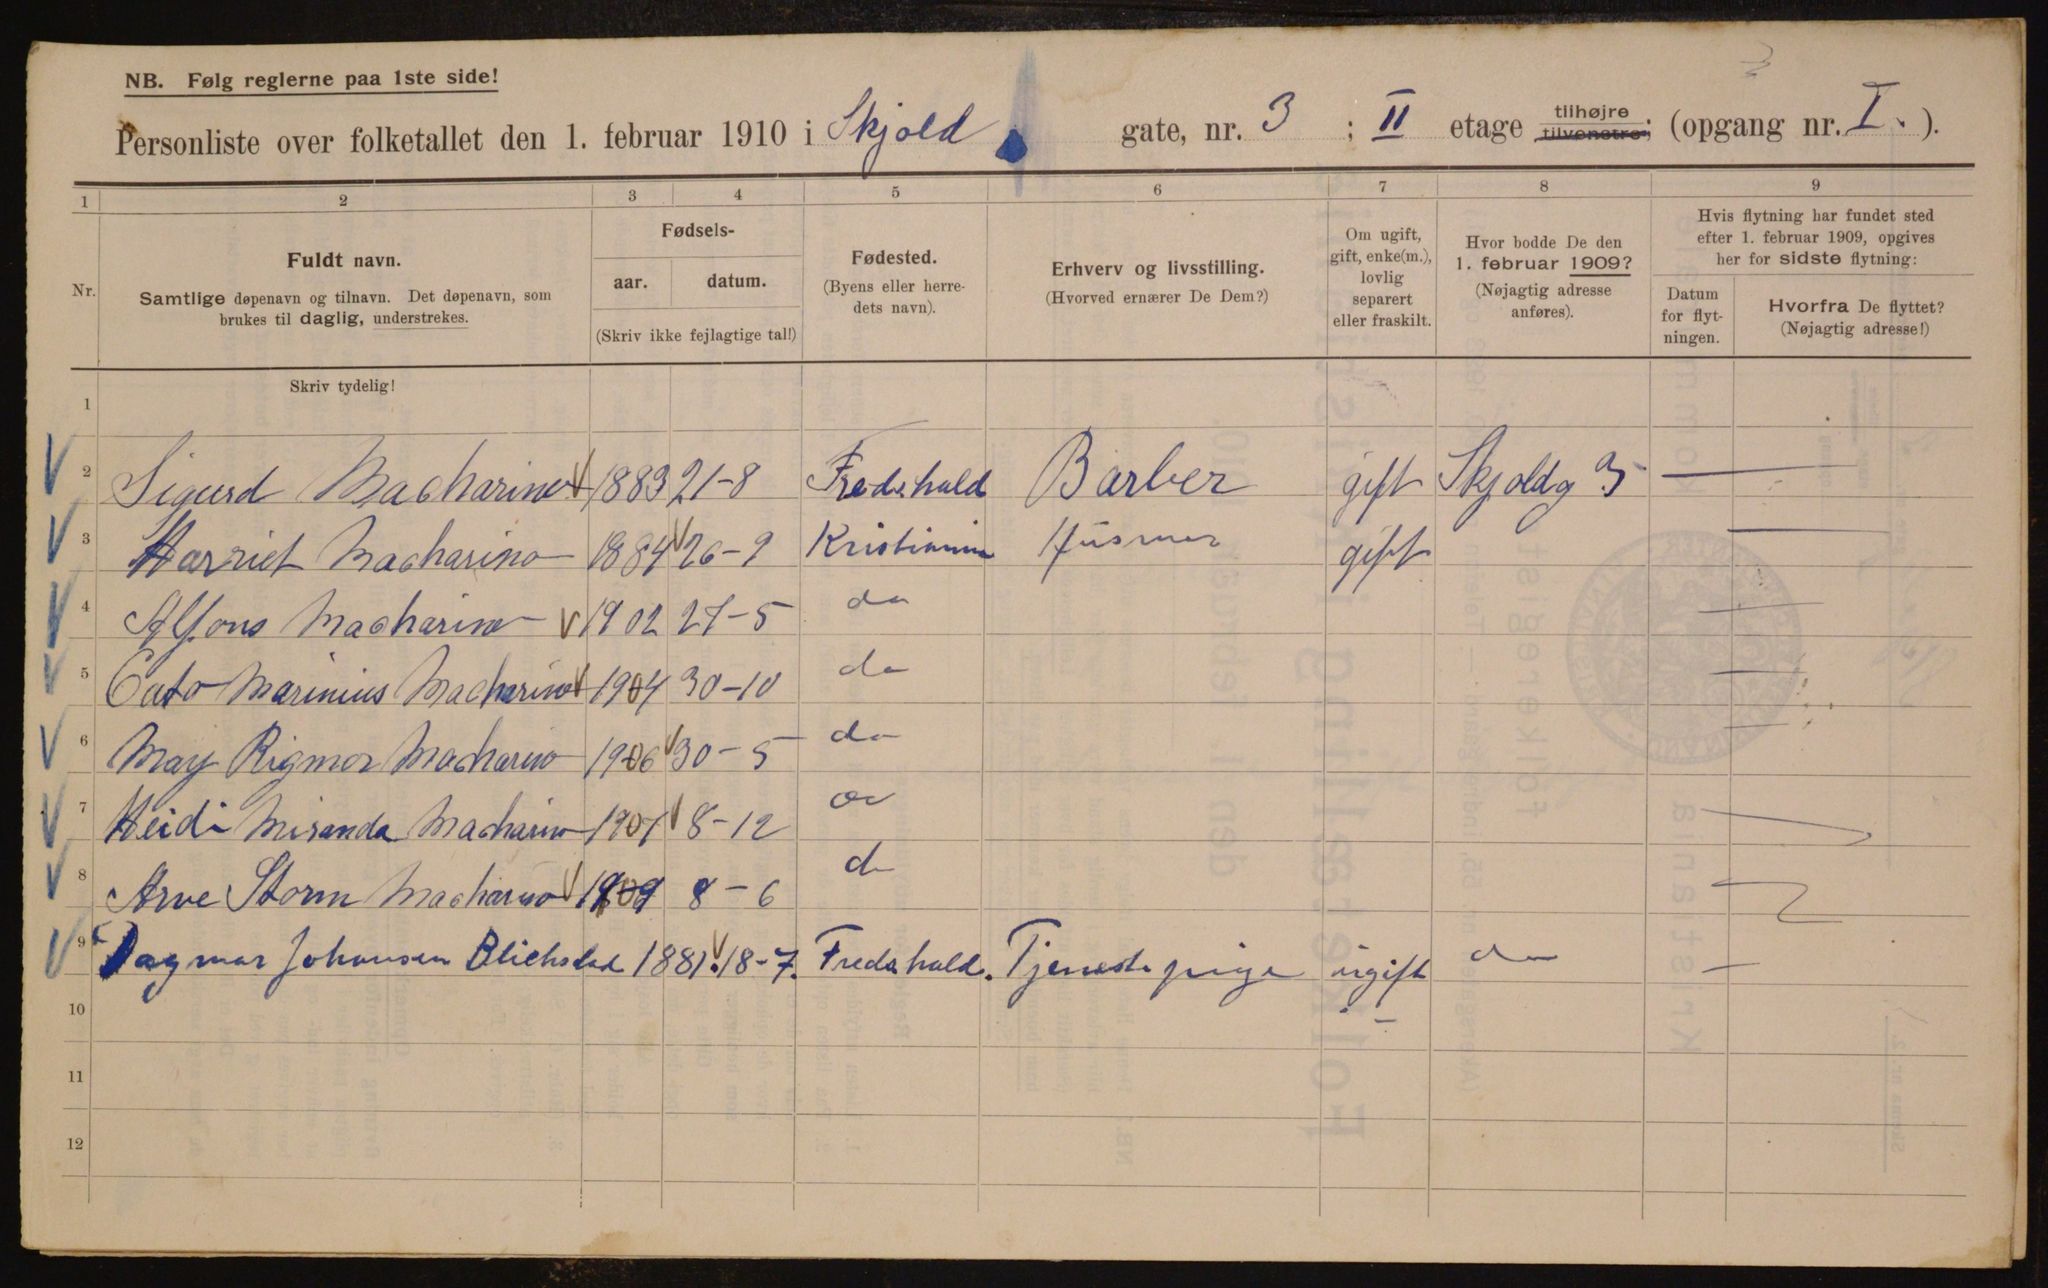 NB. Følg reglerne paa 1ste side!
Personliste over folketallet den 1. februar 1910 i Skjold gate, nr. 3 ; II etage tilhøjre tilvenstre; (opgang nr. I. ).
1 2 3 4 5 6 7 8 9
Nr.
Fuldt navn.
Samtlige døpenavn og tilnavn. Det døpenavn, som
brukes til daglig, understrekes.
Fødsels-
aar. datum.
(Skriv ikke fejlagtige tal!)
Fødested.
(Byens eller herre-
dets navn).
Erhverv og livsstilling.
(Hvorved ernærer De Dem?)
Om ugift,
gift, enke(m.),
lovlig
separert
eller fraskilt.
Hvor bodde De den
1. februar 1909?
(Nøjagtig adresse
anføres).
Hvis flytning har fundet sted
efter 1. februar 1909, opgives
her for sidste flytning:
Datum
for flyt-
ningen.
Hvorfra De flyttet?
(Nøjagtig adresse!)
Skriv tydelig!
1
2 Sigurd Macharino 1883 21-8 Fredshald Barber gift Skjoldg 3 —
3 Harriet Macharino 1884 26-9 Kristiania Husmor gift —
4 Alfons Macharino 1902 27-5 do —
5 Cato Marinius Macharino 1904 30-10 do —
6 May Rigmor Macharino 1906 30-5 do —
7 Heidi Miranda Macharino 1907 8-12 do
8 Arve Storm Macharino 1909 8-6 do
9 Dagmar Johansen Blichstad 1881. 18-7. Fredshald. Tjenestepige ugift do —
10
11
12